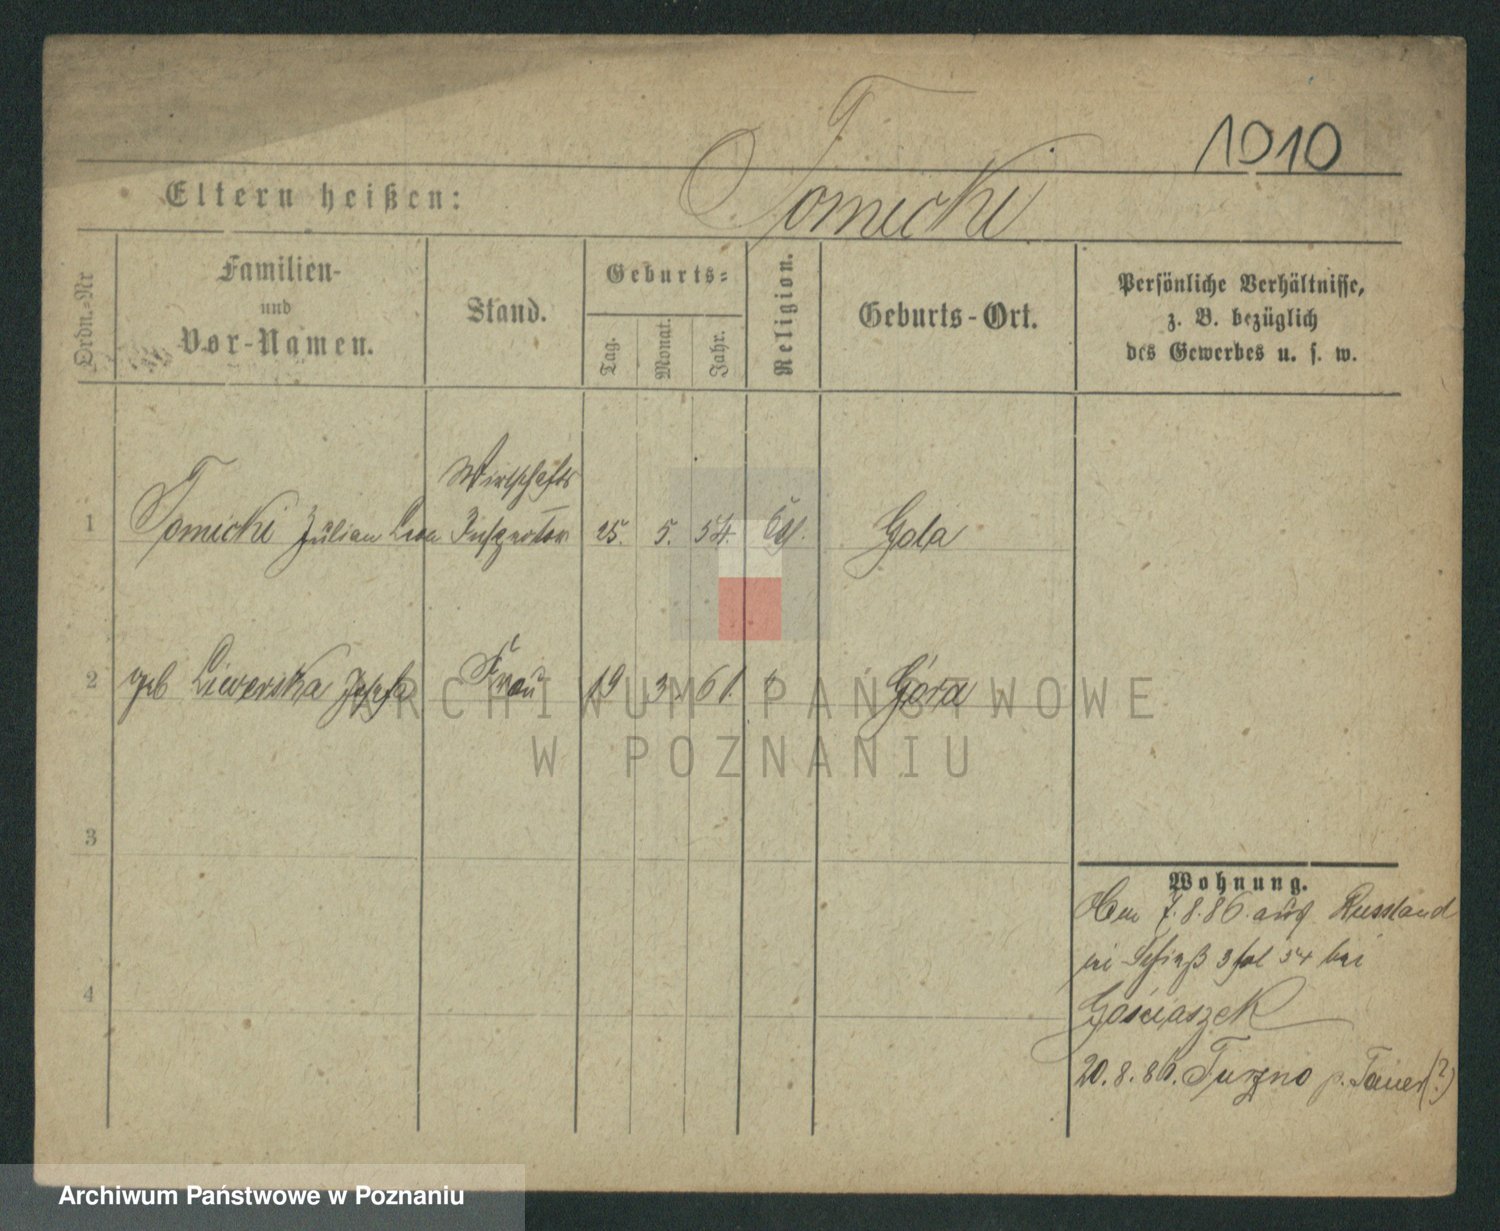 1010
Eltern heißen:
Tomicki
Ordn.-Nr
Familien-
und
Vor-Namen.
Stand.
Geburts-
Tag.
Monat.
Jahr.
Religion.
Geburts-Ort.
Persönliche Verhältnisse,
z. B. bezüglich
des Gewerbes u. s. w.
Wirtschafts
1 Tomicki Julian Leon Inspector 25. 5. 54. Gola
2 geb Liwerska Josefa Frau 19 3. 61. Góra
ARCHIWUM PAŃSTWOWE
W POZNANIU
3
Wohnung.
7.8.86. aus Russland
3 54 bei
4
Gościaszek
20.8.86. Turzno p. Tauer(?)
Archiwum Państwowe w Poznaniu